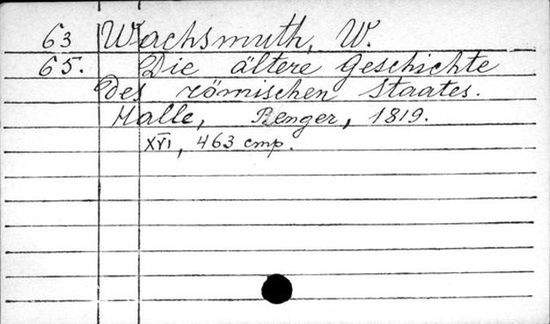 63 Wachsmuth, W.
65. Die ältere Geschichte
des römischen Staates.
Halle, Renger, 1819.
XVI, 463 cmp.